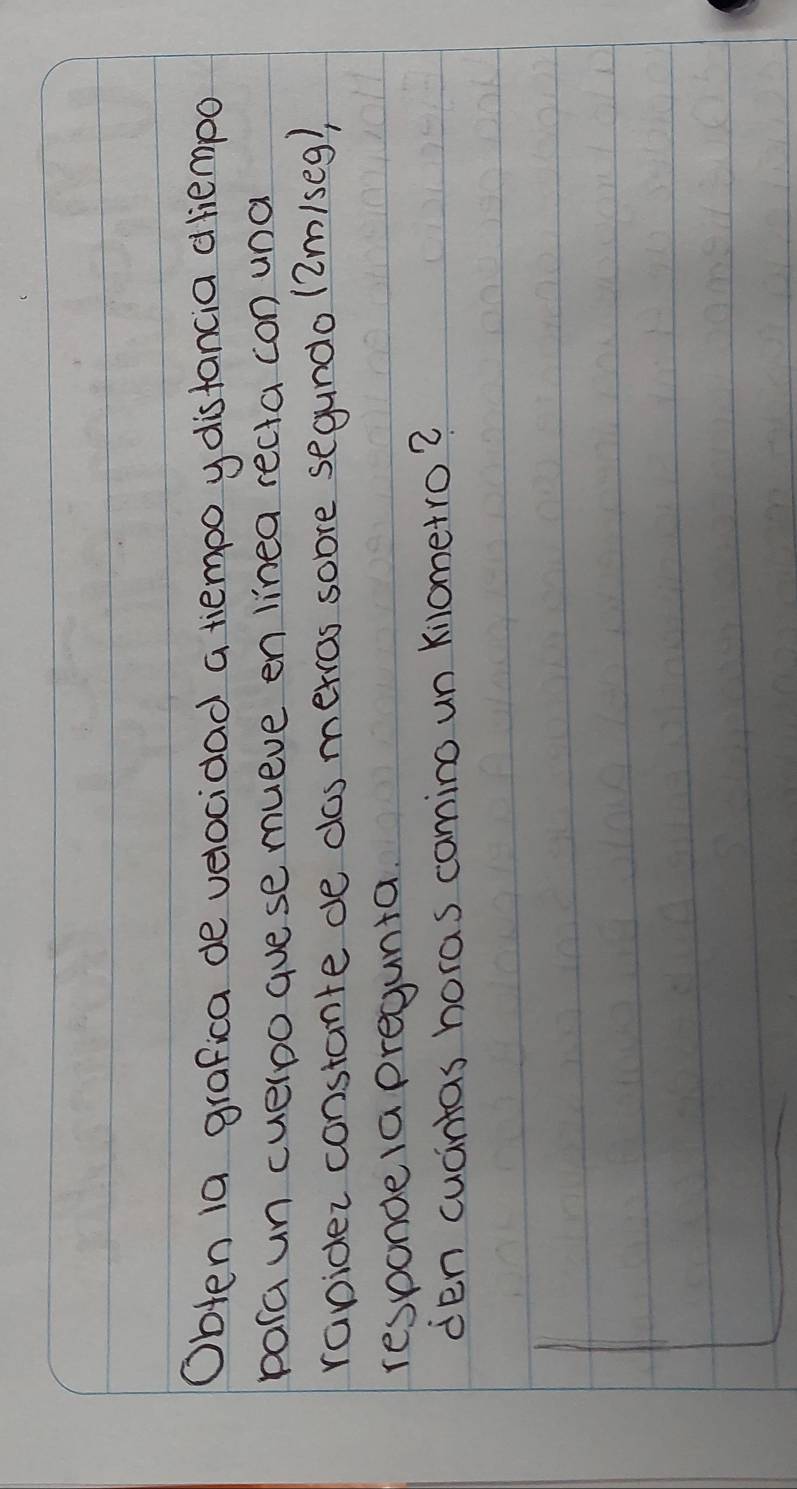 Obten la grafica de velocidad a tiempo y distancia a tiempo
para un cuerpo que se mueve en línea recta con una
rapidez constante de dos metros sobre segundo (2m/seg),
responde la pregunta.
¿En cuántas horas camino un Kilometro?